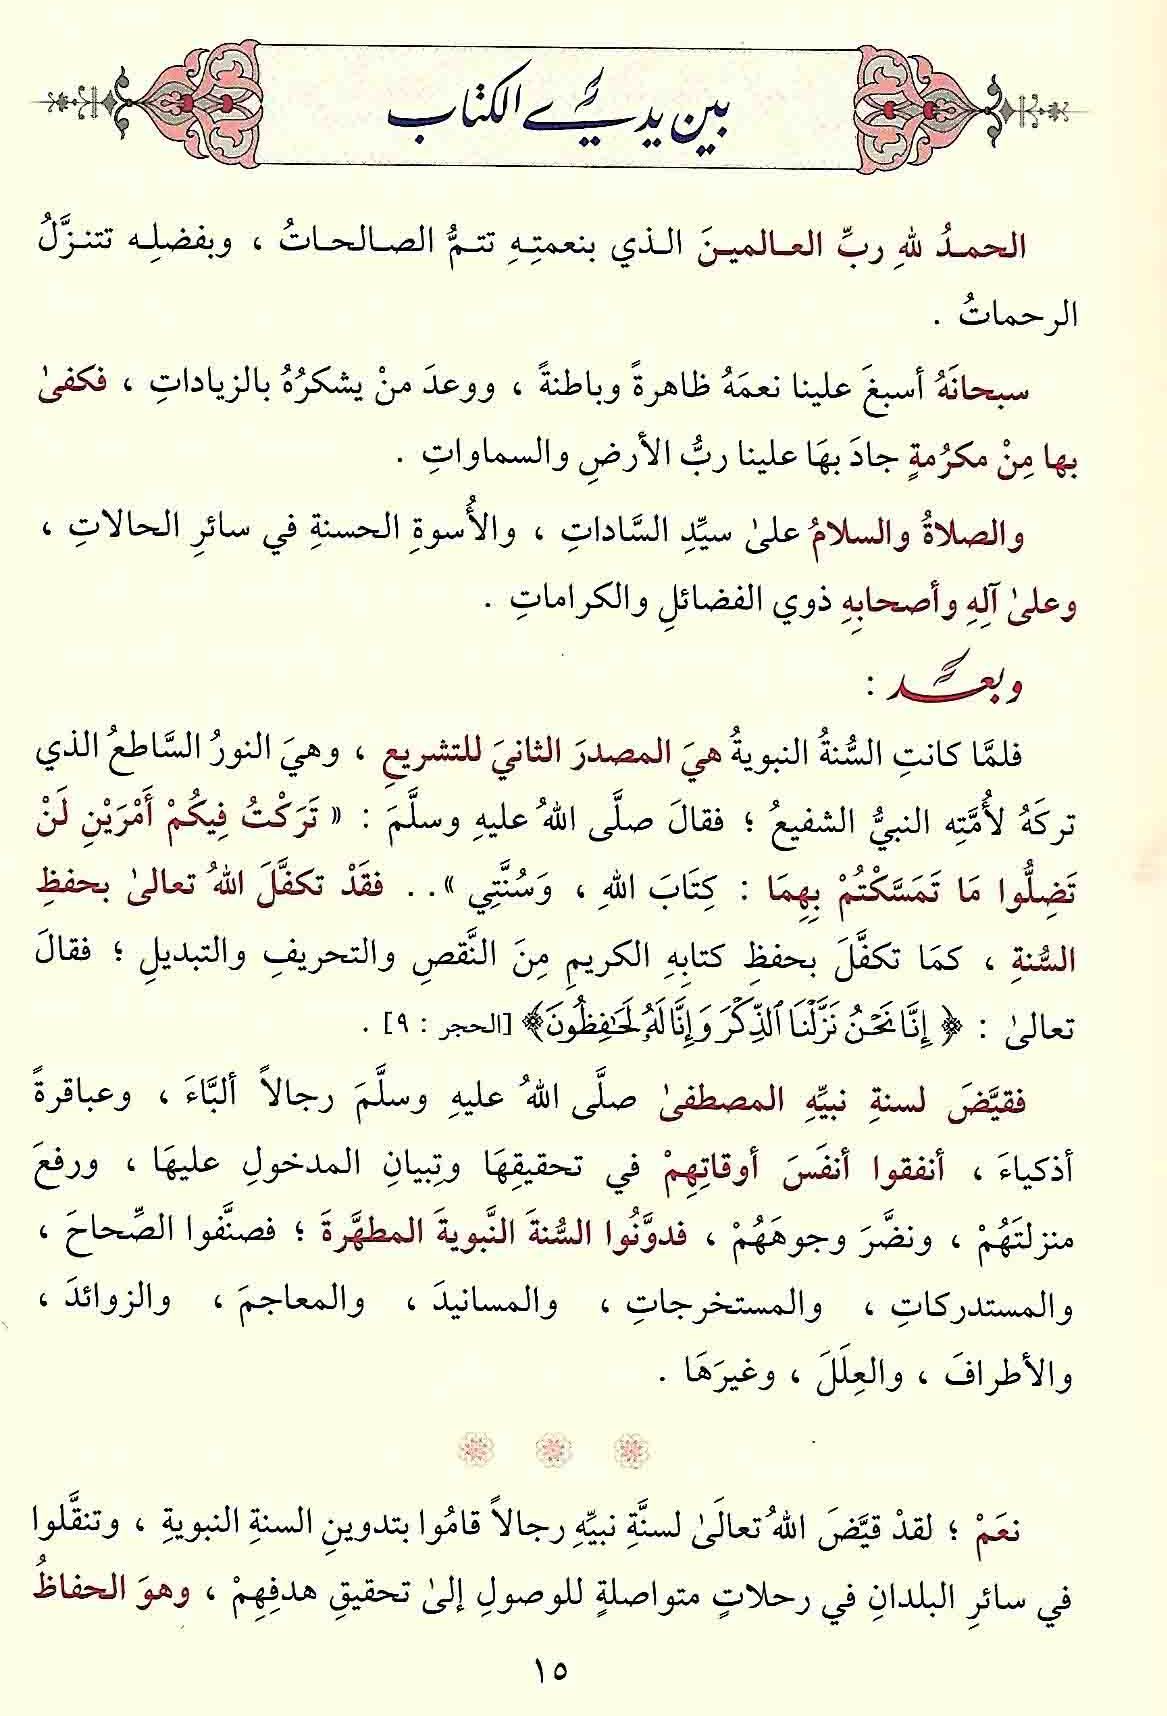 بين يدي الكتاب
الحمدُ للهِ ربِّ العـالميـنَ الـذي بنعمتِـهِ تتمُّ الصـالحـاتُ ، وبفضلِـه تتنـزَّلُ
الرحماتُ .
سبحانَهُ أسبغَ علينا نعمَهُ ظاهرةً وباطنةً ، ووعدَ منْ يشكرُهُ بالزياداتِ ، فكفىٰ
بها مِنْ مكرُمةٍ جادَ بهَا علينا ربُّ الأرضِ والسماواتِ .
والصلاةُ والسلامُ علىٰ سيِّدِ السَّاداتِ ، والأُسوةِ الحسنةِ في سائرِ الحالاتِ ،
وعلىٰ آلِهِ وأصحابِهِ ذوي الفضائلِ والكراماتِ .
وبعد :
فلمَّا كانتِ السُّنةُ النبويةُ هيَ المصدرَ الثانيَ للتشريعِ ، وهيَ النورُ السَّاطعُ الذي
تركَهُ لأُمَّتِه النبيُّ الشفيعُ ؛ فقالَ صلَّى اللهُ عليهِ وسلَّمَ : « تَرَكْتُ فِيكُمْ أَمْرَيْنِ لَنْ
تَضِلُّوا مَا تَمَسَّكْتُمْ بِهِمَا : كِتَابَ اللهِ ، وَسُنَّتِي » . . فقَدْ تكفَّلَ اللهُ تعالىٰ بحفظِ
السُّنةِ ، كمَا تكفَّلَ بحفظِ كتابِهِ الكريمِ مِنَ النَّقصِ والتحريفِ والتبديلِ ؛ فقالَ
تعالىٰ : ﴿ إِنَّا نَحْنُ نَزَّلْنَا ٱلذِّكْرَ وَإِنَّا لَهُۥ لَحَـٰفِظُونَ ﴾ [الحجر : ٩] .
فقيَّضَ لسنةِ نبيِّهِ المصطفىٰ صلَّى اللهُ عليهِ وسلَّمَ رجالاً ألبَّاءَ ، وعباقرةً
أذكياءَ ، أنفقوا أنفَسَ أوقاتِهِمْ في تحقيقِهَا وتِبيانِ المدخولِ عليهَا ، ورفعَ
منزلتَهُمْ ، ونضَّرَ وجوهَهُمْ ، فدوَّنُوا السُّنةَ النَّبويةَ المطهَّرةَ ؛ فصنَّفوا الصِّحاحَ ،
والمستدركاتِ ، والمستخرجاتِ ، والمسانيدَ ، والمعاجمَ ، والزوائدَ ،
والأطرافَ ، والعِلَلَ ، وغيرَهَا .
نعَمْ ؛ لقدْ قيَّضَ اللهُ تعالَىٰ لسنَّةِ نبيِّهِ رجالاً قامُوا بتدوينِ السنةِ النبويةِ ، وتنقَّلوا
في سائرِ البلدانِ في رحلاتٍ متواصلةٍ للوصولِ إلىٰ تحقيقِ هدفِهِمْ ، وهوَ الحفاظُ
١٥